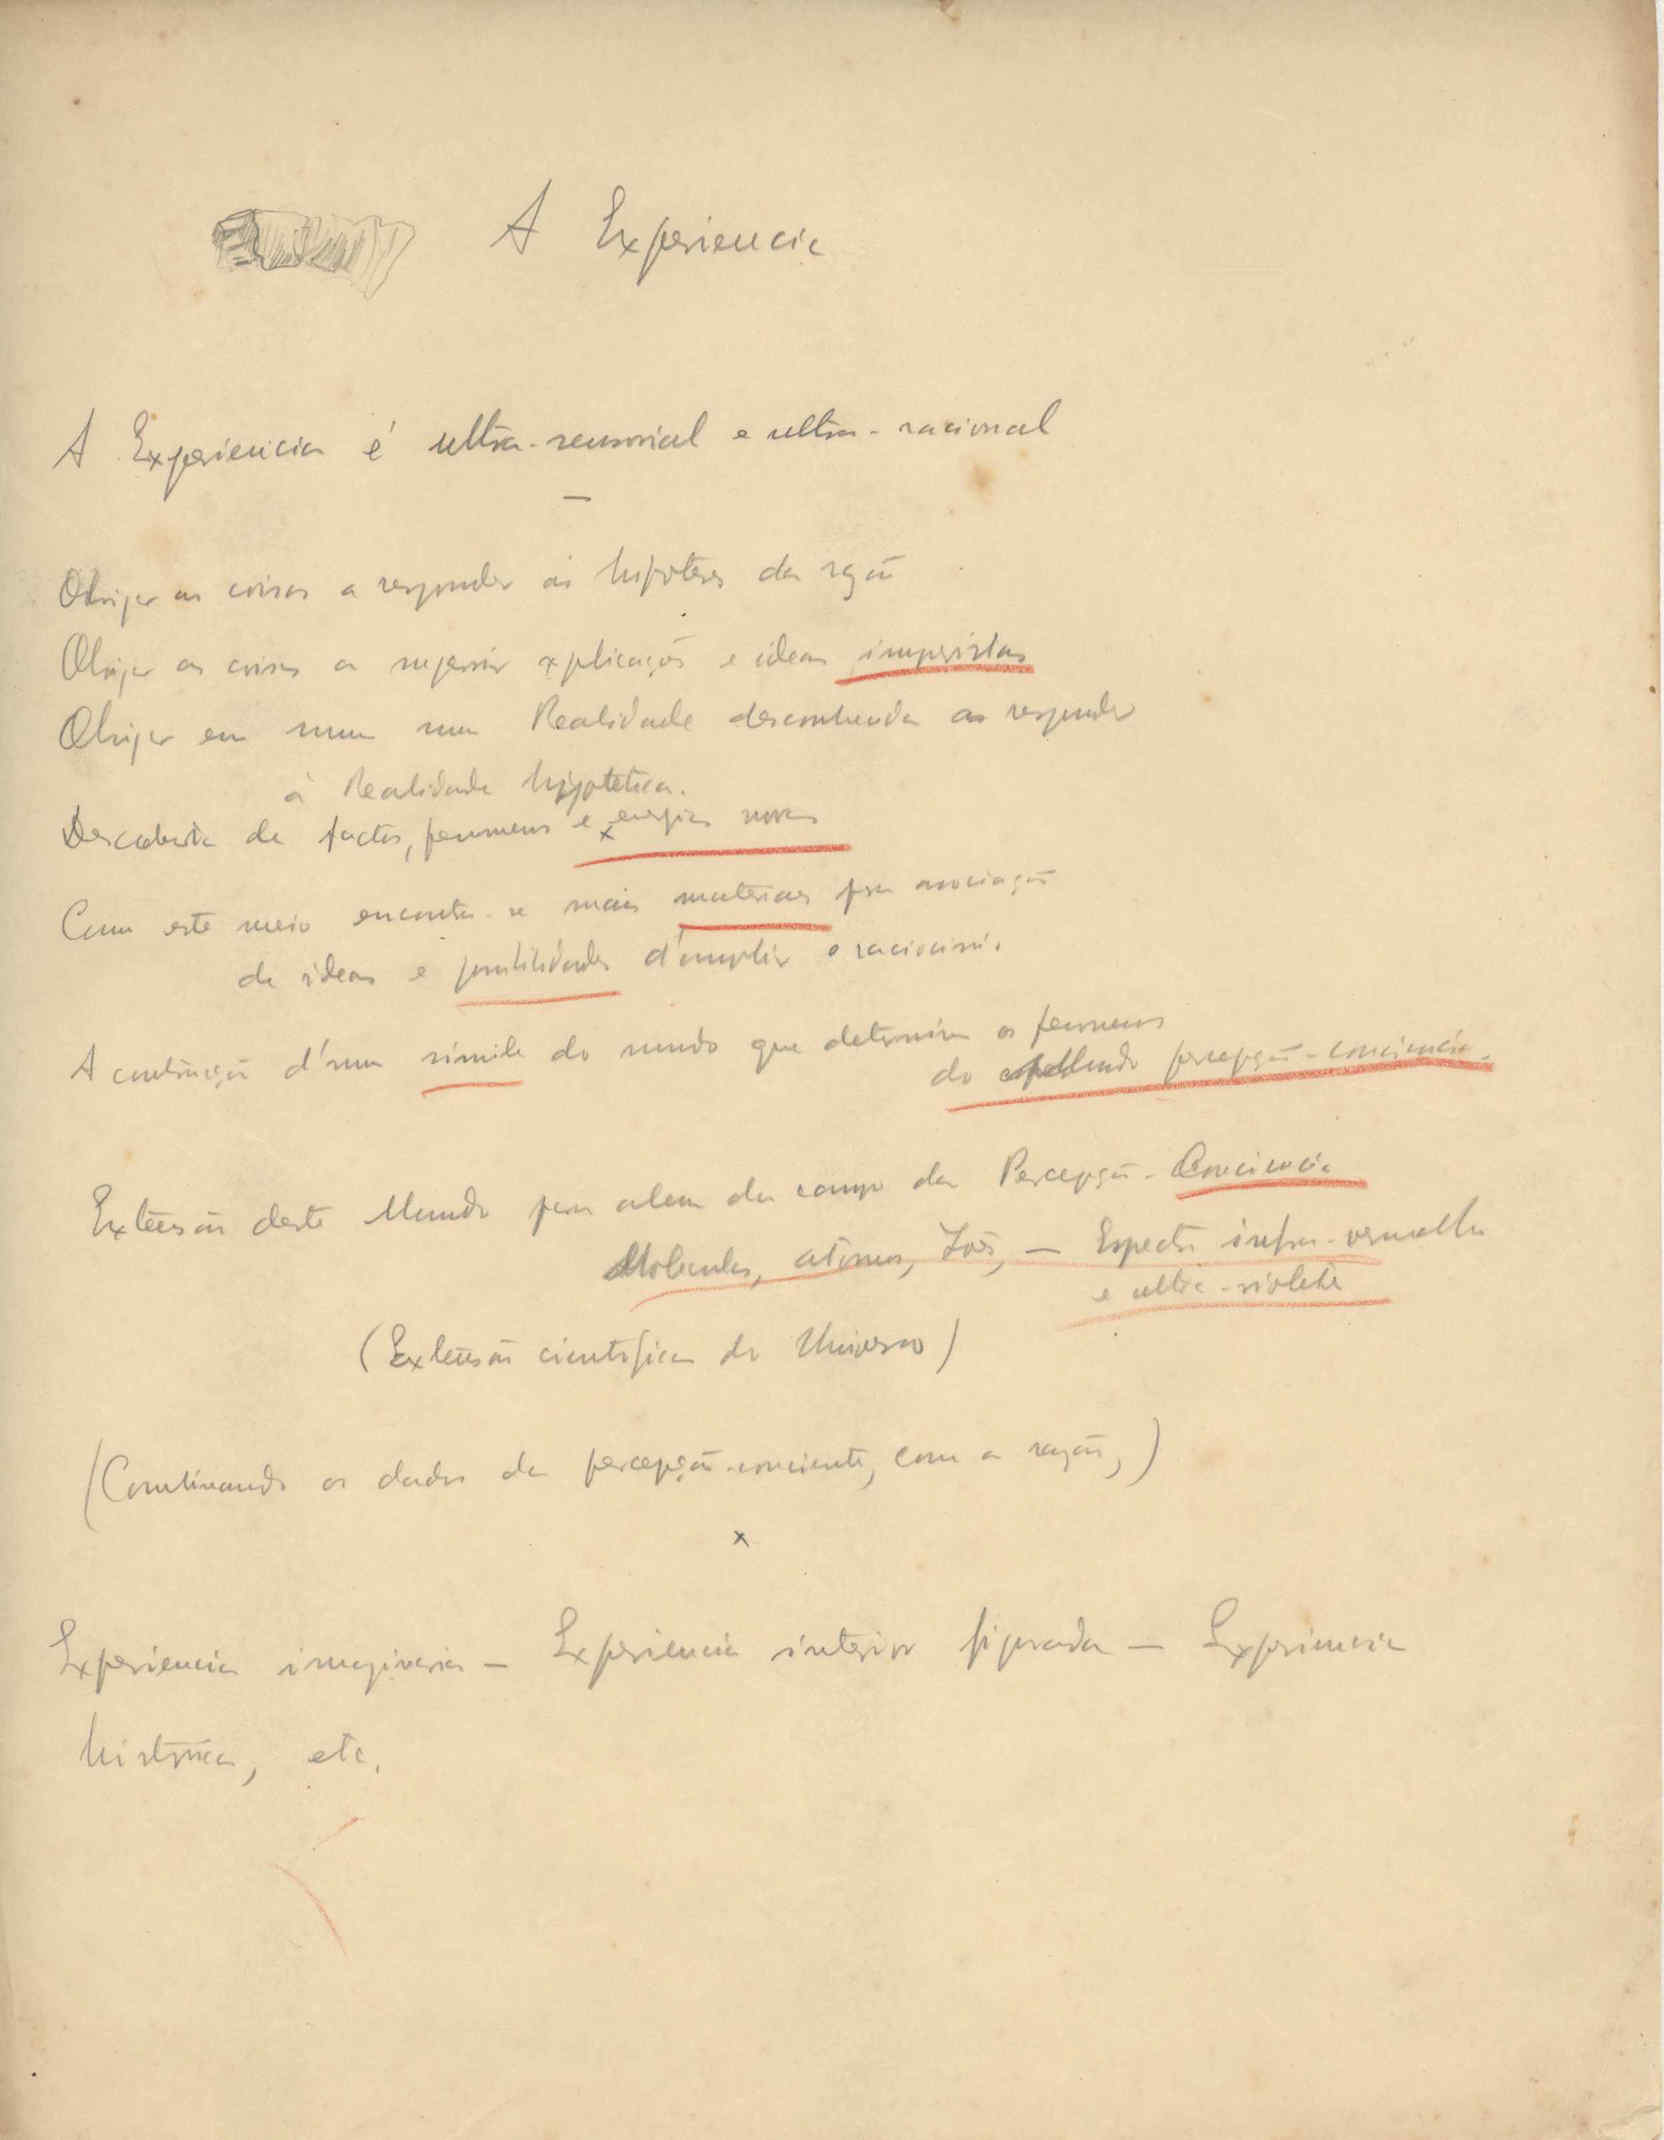 A Experiencia
A Experiencia é ultra-sensorial e ultra-racional
—
Obrigar as coisas a responder ás hipoteses da razão
Obrigar as coisas a sugerir explicações e ideas imprevistas
Obrigar em suma uma Realidade desconhecida a responder
á Realidade hipotetica.
Descoberta de factos, fenomenos e energias novas
Com este meio encontra-se mais materiaes para associação
de ideas e possibilidades d'ampliar o raciocinio.
A construção d'um simile do mundo que determina os fenomenos
do percepção-conciencia.
Extensão deste Mundo para alem do campo da Percepção-Conciencia
Moleculas, atomos, Iões, — Espectro infra-vermelho
e ultra-violeta
(Extensão cientifica do Universo)
(Combinando os dados da percepção-conciente, com a razão,)
x
Experiencia imaginaria — Experiencia interior figurada — Experiencia
historica, etc.